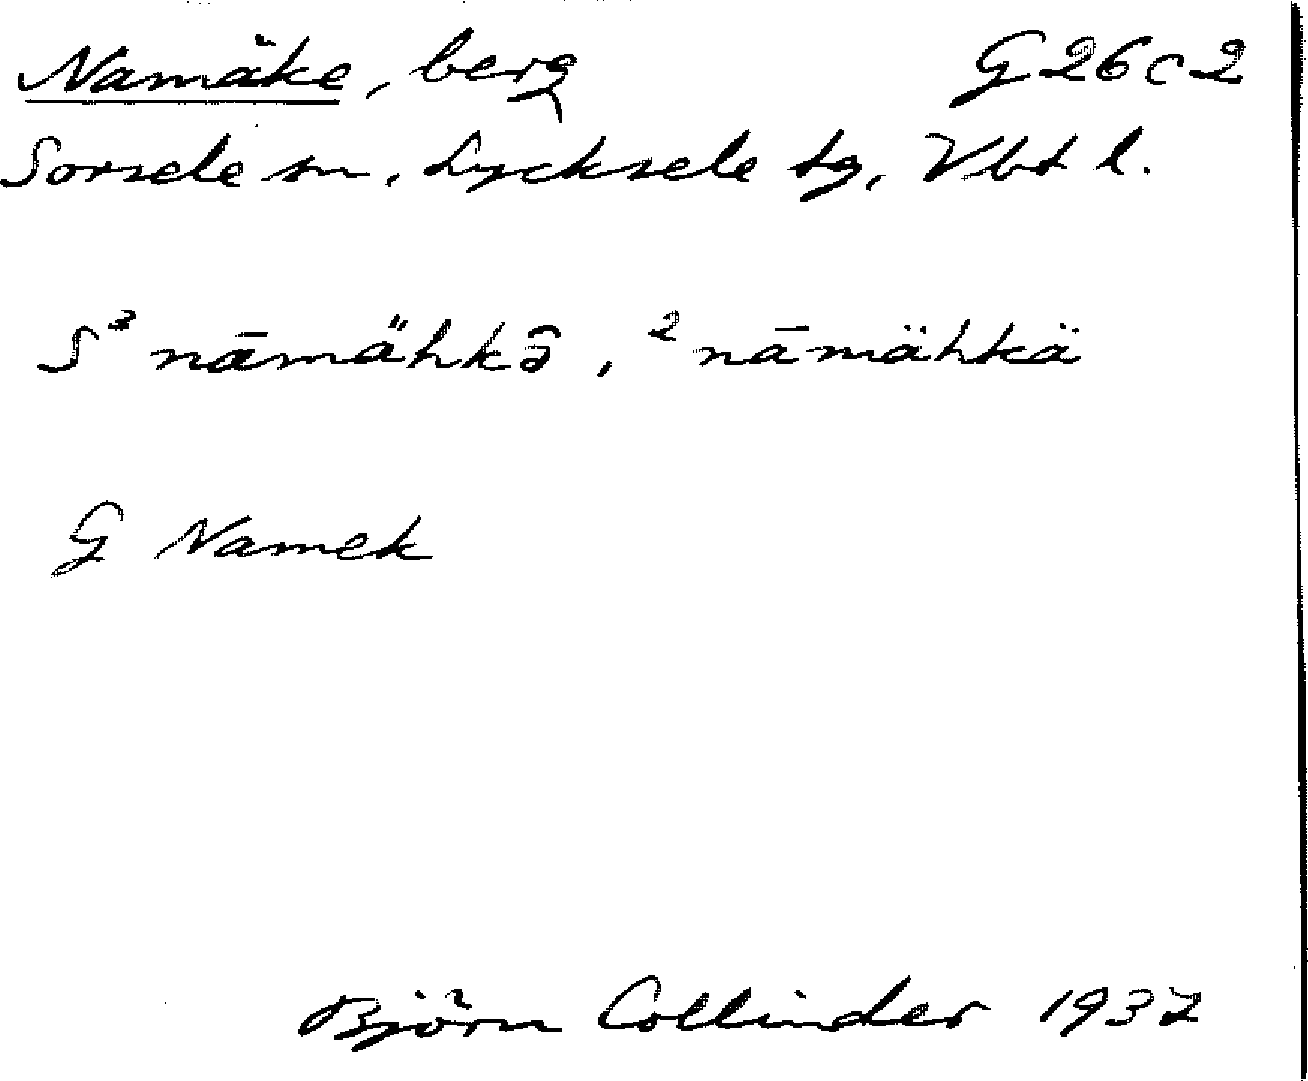 Namäke, berg G26c2
Sorsele sn, Lycksele tg, Vbt l.
S³ nāmähkə̂, ² nāmähkä
G Namek
Björn Collinder 1937